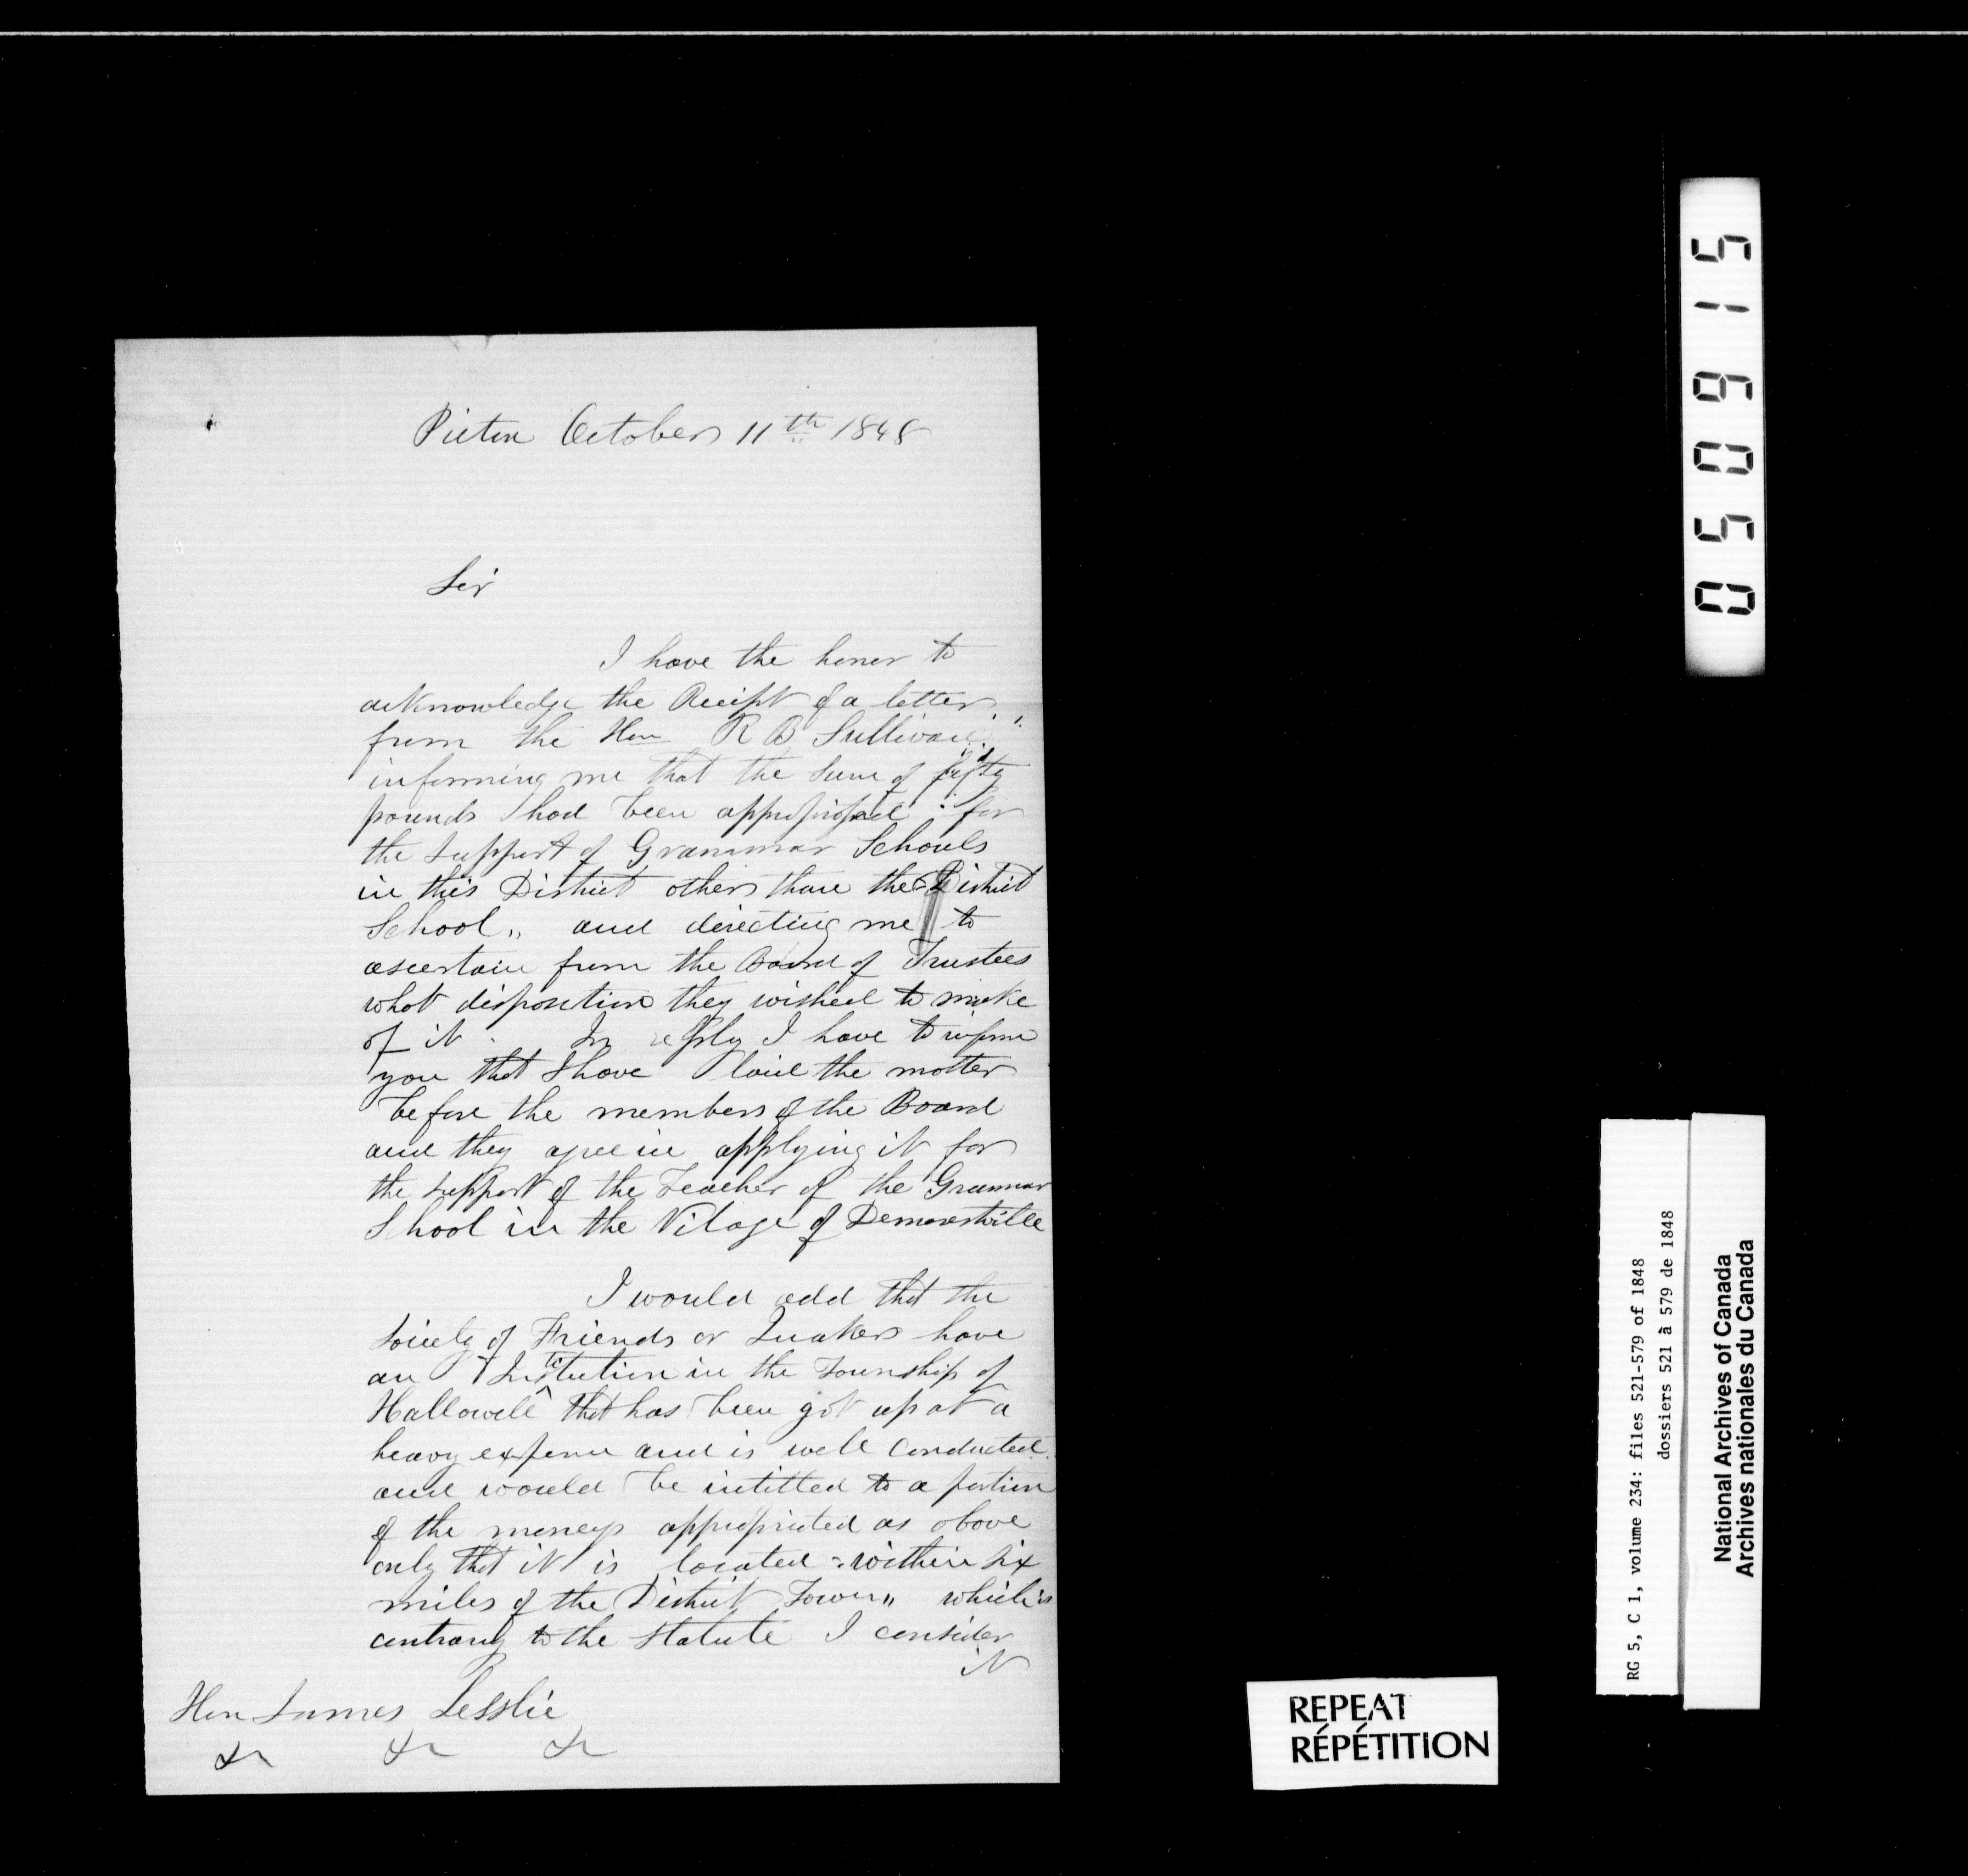 Picton October 11th 1848
Sir
I have the honor to
acknowledge the Receipt of a letter
from the Hon R B Sullivan
informing me that the Sum of fifty
pounds had been appropriated for
the support of Grammar Schools
in this District others than the District
School „ and directing me to
ascertain from the Board of Trustees
what disposition they wished to make
of it . In reply I have to inform
you that I have laid the matter
before the members of the Board
and they agree in applying it for
the support of the Teacher of the Grammar
School in the Vilage of Demorestville
I would add that the
Society of Friends or Quakers have
an Institution in the Township of
Hallowell that has been got up at a
heavy expense and is well Conducted
and would be intitled to a portion
of the moneys appropriated as above
only that it is located "within six
miles of the District Town„ which is
contrary to the Statute I consider
it
Hon James Lesslie
&c &c &c
051605
REPEAT
RÉPÉTITION
RG 5, C 1, volume 234: files 521-579 of 1848
dossiers 521 à 579 de 1848
National Archives of Canada
Archives nationales du Canada